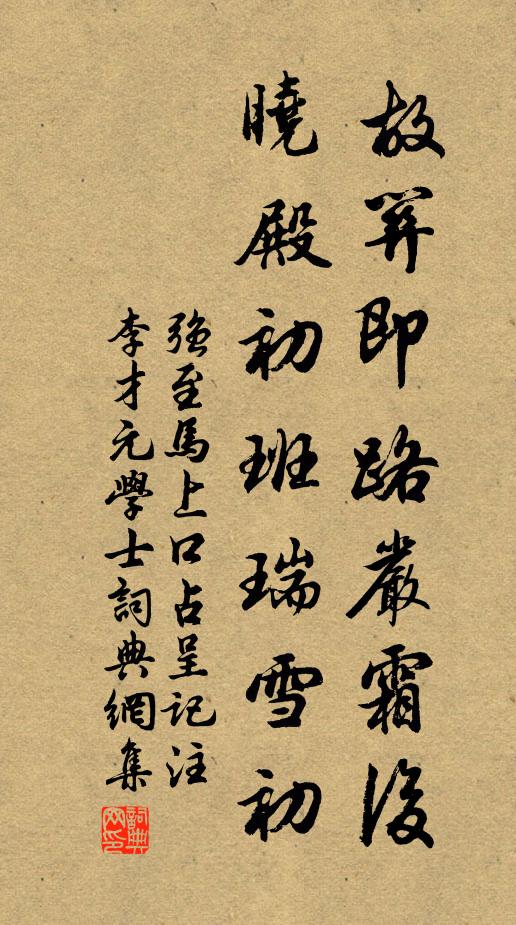 故笄即路嚴霜後
曉殿初班瑞雪初
強至馬上口占呈記注
李才元學士詞典網集
詞典
网印